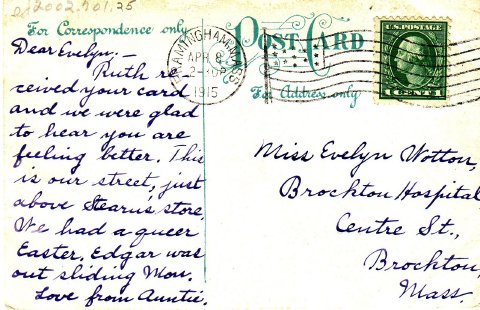 2002.901.25
For Correspondence only
POST CARD
For Address only
FRAMINGHAM, MASS
APR 8
2-30P
1915
U.S. POSTAGE
1 CENT 1
Dear Evelyn,—
Ruth re-
ceived your card
and we were glad
to hear you are
feeling better. This
is our street, just
above Stearn's store.
We had a queer
Easter. Edgar was
out sliding Mon.
Love from Auntie.
Miss Evelyn Wotton,
Brockton Hospital
Centre St.,
Brockton,
Mass.